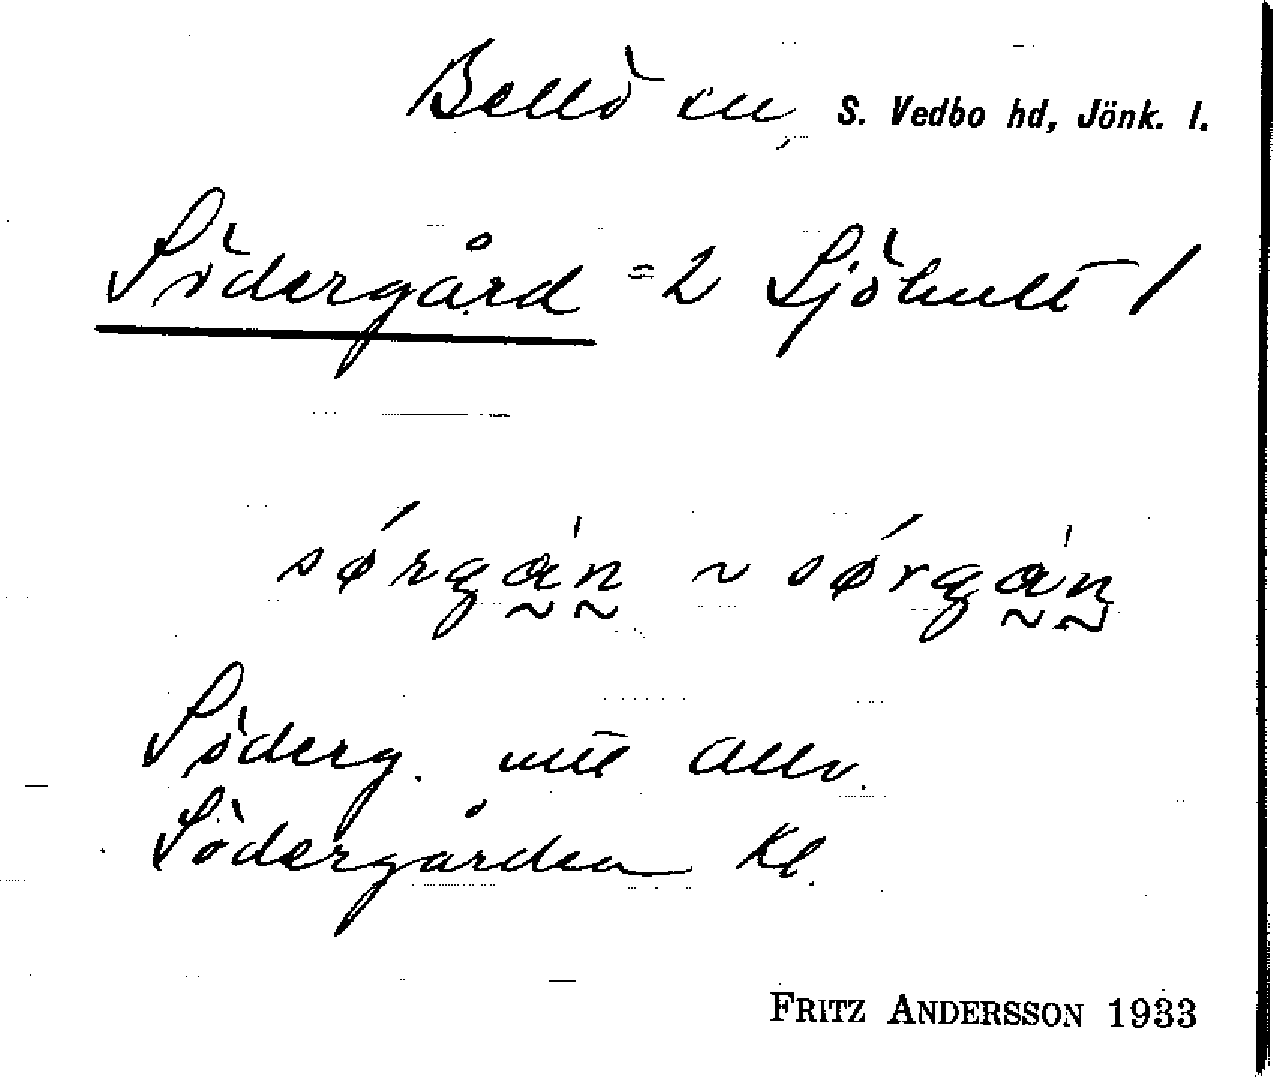 Bellö sn, S. Vedbo hd, Jönk. l.
Södergård = 2 Sjöhult 1
sǿrgá̰n̰ ~ sǿrgá̰n̰
Söderg. mtl Allv.
Södergården Kl.
FRITZ ANDERSSON 1933